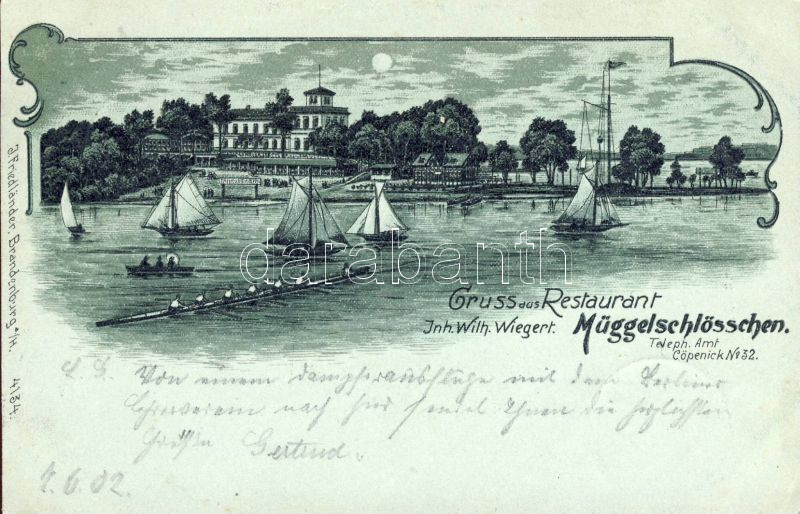 Gruss aus Restaurant
Inh. Wilh. Wiegert. Müggelschlösschen.
Teleph. Amt
Cöpenick No 32.
J. Friedländer. Brandenburg a/H. 4134.
Von einem Dampferausfluge mit dem Berliner
nach hier sendet Ihnen die herzlichsten
Grüße Gertrud.
4.6.02.
darabanth